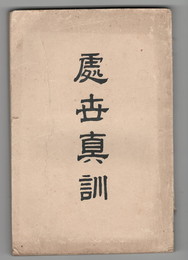 處世真訓